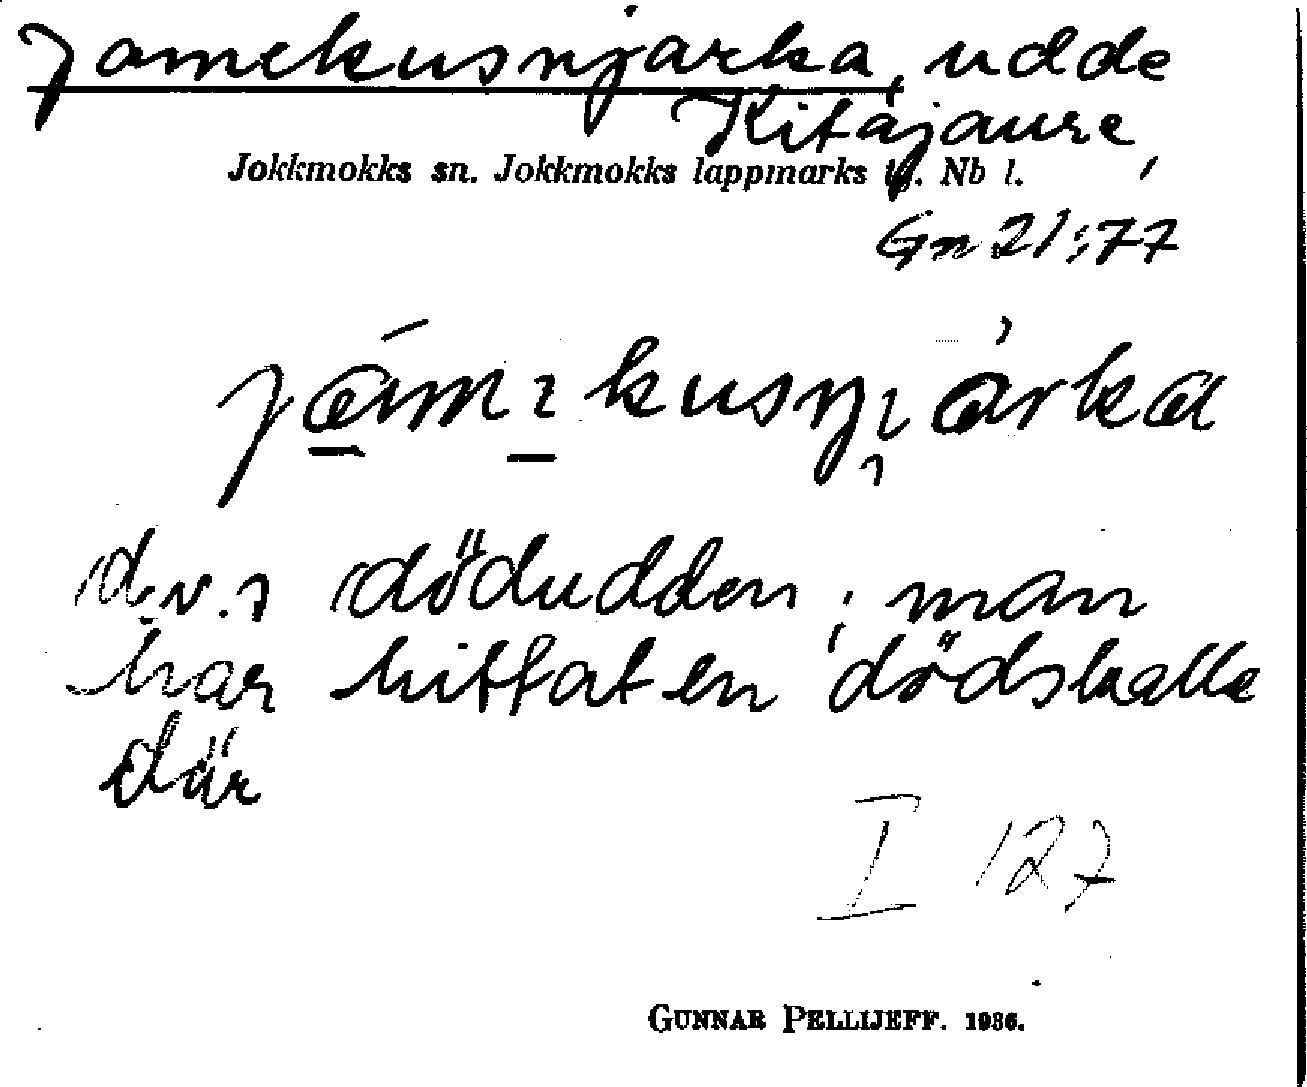 Jamekusnjarka, udde
Kitajaure,
Jokkmokks sn. Jokkmokks lappmarks Nb l.
Gn 21:77
d.v.s dödudden; man
har hittat en dödskalle
där
I 127
GUNNAR PELLIJEFF. 1936.